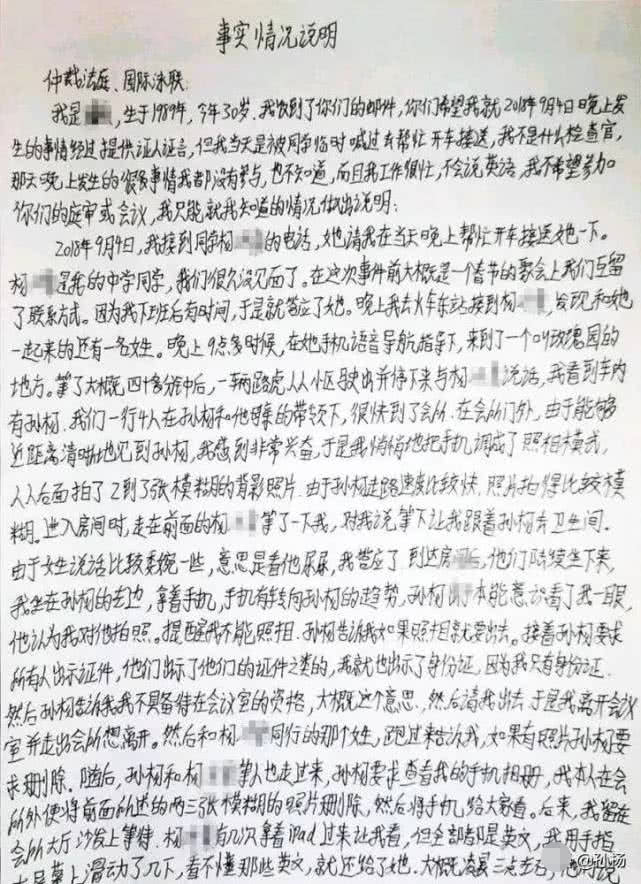 事实情况说明
仲裁法庭、国际泳联:
我是 ,生于1989年,今年30岁.我收到了你们的邮件,你们希望我就2018年9月4日晚上发
生的事情经过提供证人证言,但我当天是被同学临时喊过去帮忙开车接送,我不是什么检查官,
那天晚上发生的很多事情我都没有参与,也不知道,而且我工作很忙,不会说英语,我不希望参加
你们的庭审或会议,我只能就我知道的情况做出说明:
2018年9月4日,我接到同学杨 的电话,她请我在当天晚上帮忙开车接送她一下。
杨 是我的中学同学,我们很久没见面了。在这次事件前大概是一个春节的聚会上我们互留
了联系方式。因为我下班后有时间,于是就答应了她。晚上我去火车东站接到杨 ,发现和她
一起来的还有一名女性。晚上 点多时候,在她手机语音导航指导下,来到了一个叫玫瑰园的
地方。等了大概四十多分钟后,一辆路虎从小区驶出并停下来与杨 说话,我看到车内
有孙杨.我们一行4人在孙杨和他母亲的带领下,很快到了会所.在会所门外,由于能够
近距离清晰地见到孙杨,我感到非常兴奋,于是我悄悄地把手机调成了照相模式,
从后面拍了2到了3张模糊的背影照片.由于孙杨走路速度比较快,照片拍得比较模
糊。进入房间时,走在前面的杨 等了一下我,对我说等下让我跟着孙杨去卫生间.
由于女生说话比较委婉一些,意思是看他尿尿,我答应了.到达房 后,他们陆续坐下来,
我坐在孙杨的左边,拿着手机,手机有转向孙杨的趋势,孙杨 本能意识看了我一眼,
他认为我对他拍照。提醒我不能照相.孙杨告诉我如果照相就要出去。接着孙杨要求
所有人出示证件,他们出示了他们的证件之类的,我就也出示了身份证,因为我只有身份证.
然后孙杨告诉我我不具备待在会议室的资格,大概这个意思.然后请我出去.于是我离开会议
室并走出会所想离开。然后和杨 同行的那个女性,跑过来告诉我,如果有照片孙杨要
求删除.随后,孙杨和杨 等人也走过来,孙杨要求查看我的手机相册,我本人在会
所外便将前面所述的两三张模糊的照片删除,然后将手机给大家看。后来,我留在
会所大厅沙发上等待.杨 有几次拿着iPad过来让我看,但全部都是英文,我用手指
在屏幕上滑动了几下,看不懂那些英文,就还给了她.大概凌晨三点左右,他 说
@孙杨